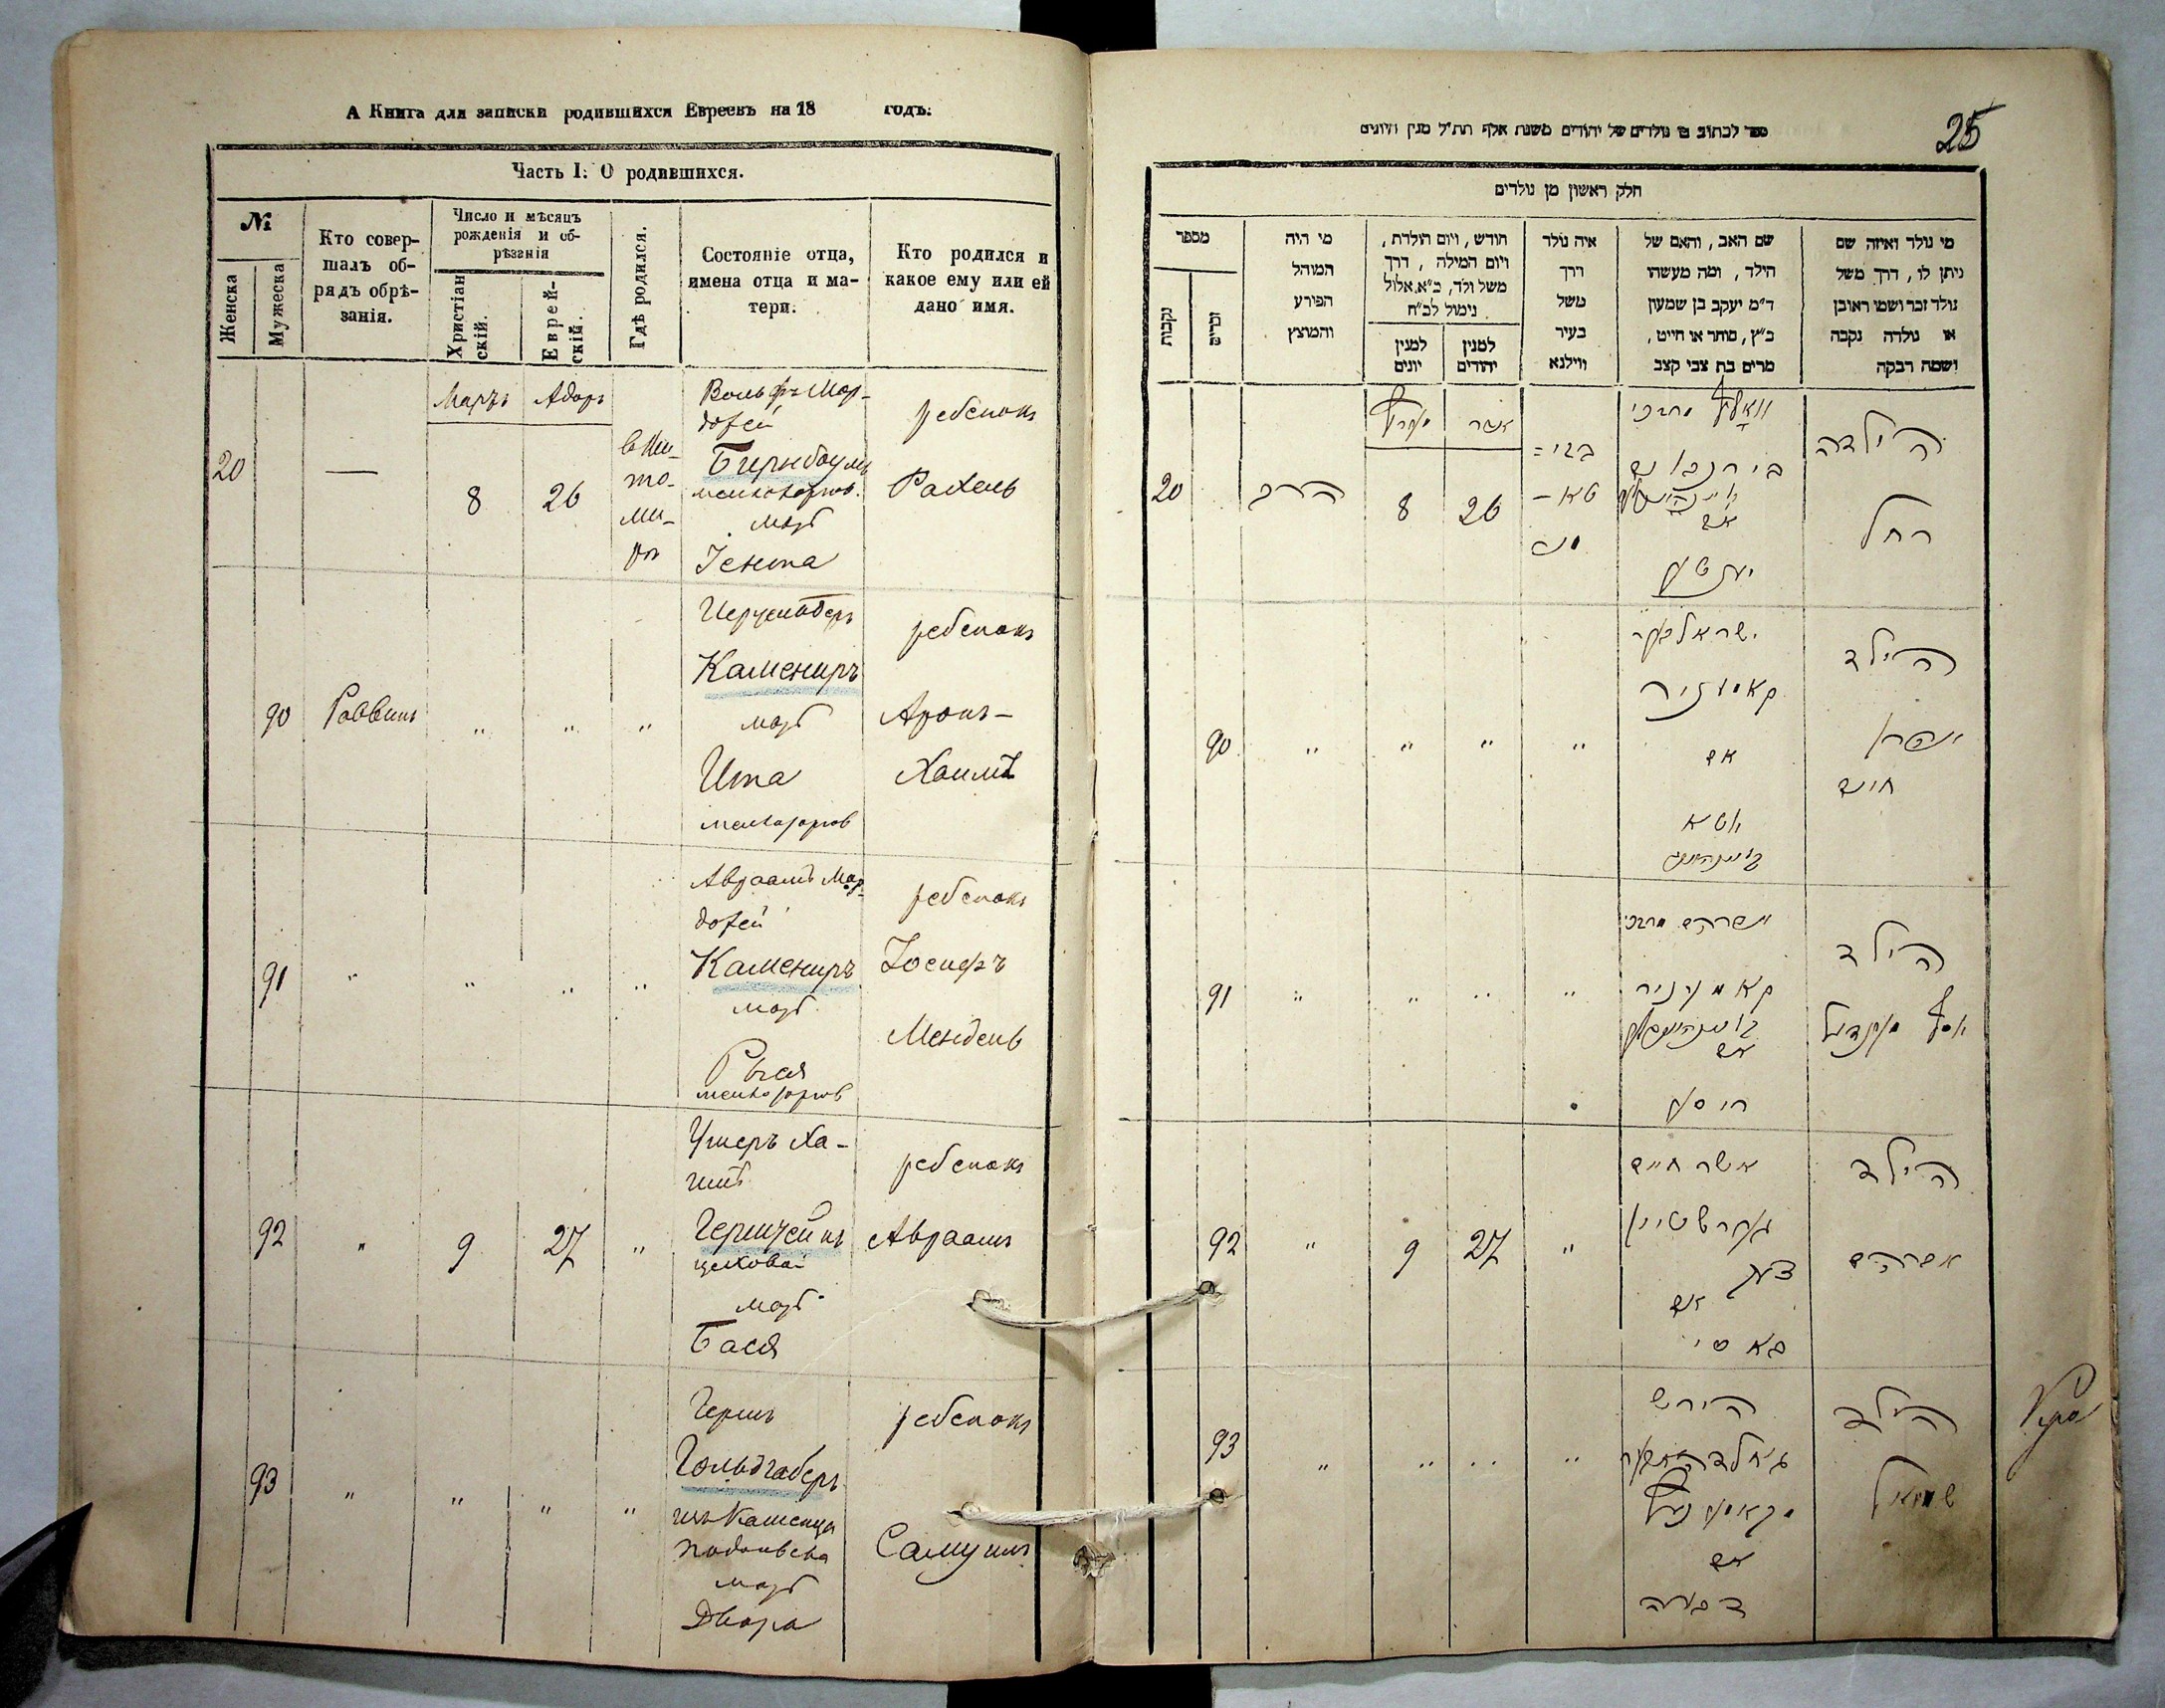 А Книга для записки родившихся Евреевъ на 18 годъ.
Часть I. О родившихся.
№
Женска
Мужеска
Кто совер-
шалъ об-
рядъ обрѣ-
занія.
Число и мѣсяцъ
рожденія и об-
рѣзанія
Христіан
скій.
Еврей-
скій.
Гдѣ родился.
Состояніе отца,
имена отца и ма-
тери.
Кто родился и
какое ему или ей
дано имя.
Мартъ
Адоръ
20
—
8
26
в Жи-
то-
ми-
рѣ
Вольфъ Мор-
дохей
Бирнбаумъ
мать
Іента
ребенокъ
Рахель
90
Раввинъ
"
"
"
Камениръ
мать
Ита
ребенокъ
Аронъ-
Хаимъ
91
"
"
"
"
Авраамъ Мор-
дохей
Камениръ
мать
Рыся
ребенокъ
Іосифъ
Мендель
92
"
9
27
"
Ушеръ Ха-
имъ
Герштейнъ
цеховой
мать
Бася
ребенокъ
Авраамъ
93
"
"
"
"
Гершъ
Гольдгаберъ
изъ Каменца
Подольска
мать
Двора
ребенокъ
Самуилъ
25
ספר לכתוב בו נולדים של יהודים משנת אלף תת"ל מנין היונים
חלק ראשון מן נולדים
מספר
נקבות
זכרים
מי היה
המוהל
הפורע
והמוצץ
חודש, ויום הולדת,
ויום המילה, דרך
משל ולד, כ"א אלול
נימול לכ"ח
למנין
יונים
למנין
יהודים
איה נולד
דרך
משל
בעיר
ווילנא
שם האב, והאם של
הילד, ומה מעשהו
ד"מ יעקב בן שמעון
כ"ץ, סוחר או חייט,
מרים בת צבי קצב
מי נולד ואיזה שם
ניתן לו, דרך משל
נולד זכר ושמו ראובן
או נולדה נקבה
ושמה רבקה
20
הרב
מערץ
אדר
8
26
וואלף מרדכי
בירנבוים
אם
יענטע
הילדה
רחל
90
"
"
"
"
ישראל בער
קאמעניר
אם
איטא
הילד
אהרן
חיים
91
"
"
"
"
אברהם מרדכי
קאמעניר
אם
ריסע
הילד
יוסף מענדיל
92
"
9
27
"
אשר חיים
גערשטיין
אם
באסי
הילד
אברהם
93
"
"
"
"
הירש
גאלדהאבער
מקאמעניץ
אם
דבורה
הילד
שמואל